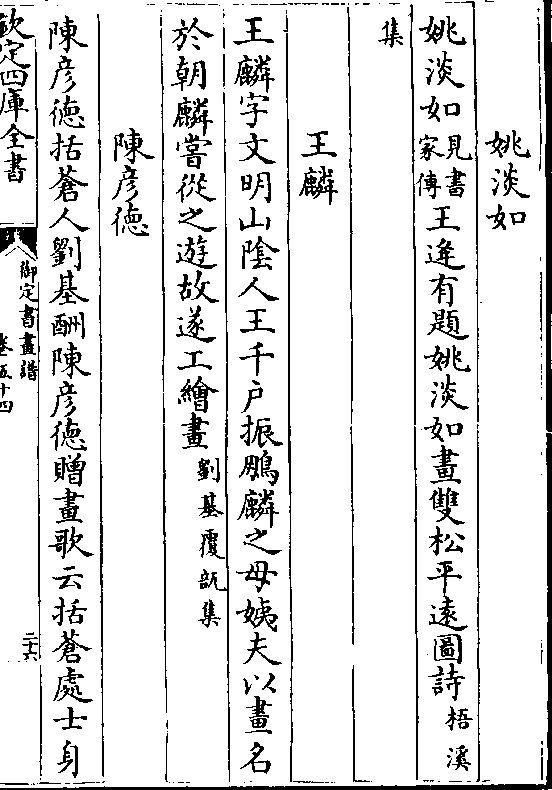 姚淡如
姚淡如見書家傳王逢有題姚淡如畫雙松平遠圖詩梧溪
集
王麟
王麟字文明山陰人王千戶振鵬麟之母姨夫以畫名
於朝麟嘗從之遊故遂工繪畫劉基覆瓿集
陳彥德
陳彥德括蒼人劉基酬陳彥德贈畫歌云括蒼處士身
欽定四庫全書
御定書畫譜
卷五十四
二十六